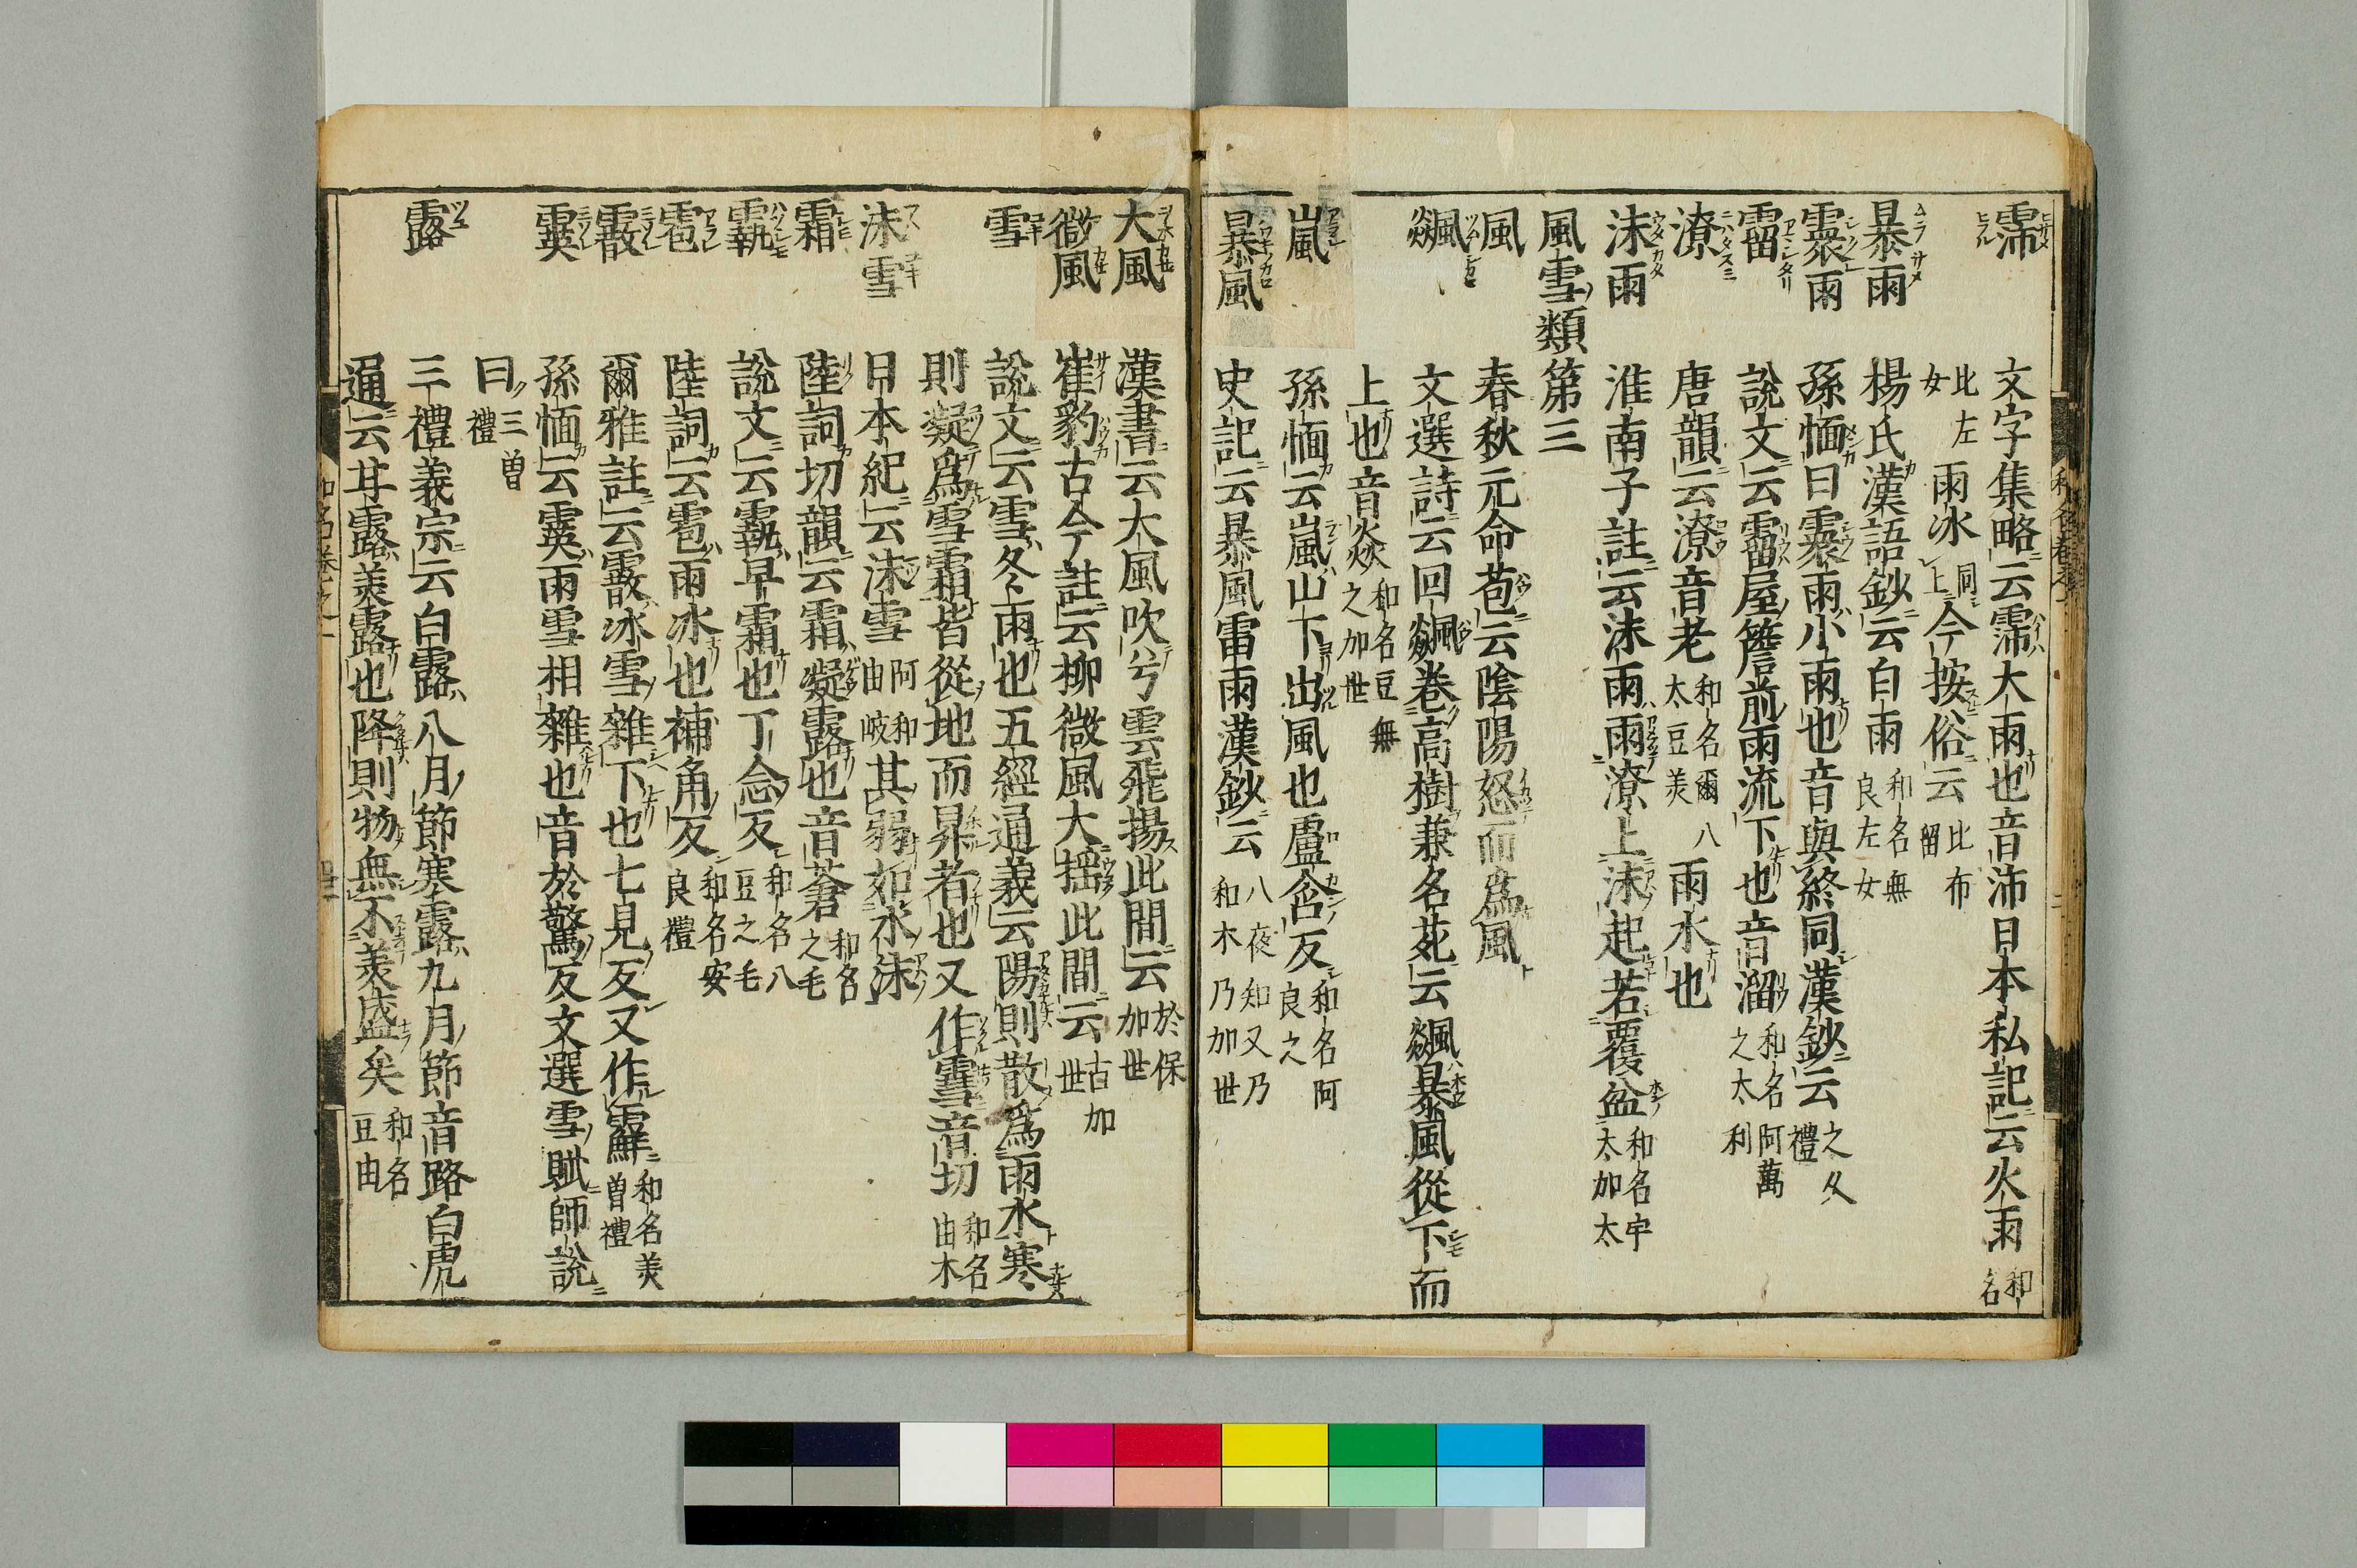 霈 文字集略云霈大雨也音沛日本私記云火雨 和名
比左女 雨冰 同上 今按俗云 比布留
暴雨 楊氏漢語鈔云白雨 和名無良左女
霡雨 孫愐曰霡雨小雨也音與終同漢鈔云 之久禮
霤 說文云霤屋簷前雨流下也音溜 和名阿萬之太利
潦 唐韻云潦音老 和名爾八太豆美 雨水也
沫雨 淮南子註云沫雨雨潦上沫起若覆盆 和名宇太加太
風雪類第三
風 春秋元命苞云陰陽怒而為風
飇 文選詩云回飇卷高樹兼名苑云飇暴風從下而
上也音焱 和名豆無之加世
嵐 孫愐云嵐山下出風也盧含反 和名阿良之
暴風 史記云暴風雷雨漢鈔云 八夜知又乃和木乃加世
大風 漢書云大風吹兮雲飛揚此間云 於保加世
微風 崔豹古今註云柳微風大搖此間云 古加世
雪 說文云雪冬雨也五經通義云陽則散爲雨水寒
則凝爲雪霜皆從地而昇者也又作䨮音切 和名由木
沫雪 日本紀云沫雪 阿和由岐 其弱如水沫
霜 陸詞切韻云霜凝露也音蒼 和名之毛
䨴 說文云䨴早霜也丁念反 和名八豆之毛
雹 陸詞云雹雨冰也補角反 和名安良禮
霰 爾雅註云霰冰雪雜下也七見反又作䨘 和名美曽禮
霙 孫愐云霙雨雪相雜也音於驚反文選雪賦師說
曰 三曽禮
露 三禮義宗云白露八月節寒露九月節音路白虎
通云甘露美露也降則物無不美盛矣 和名豆由